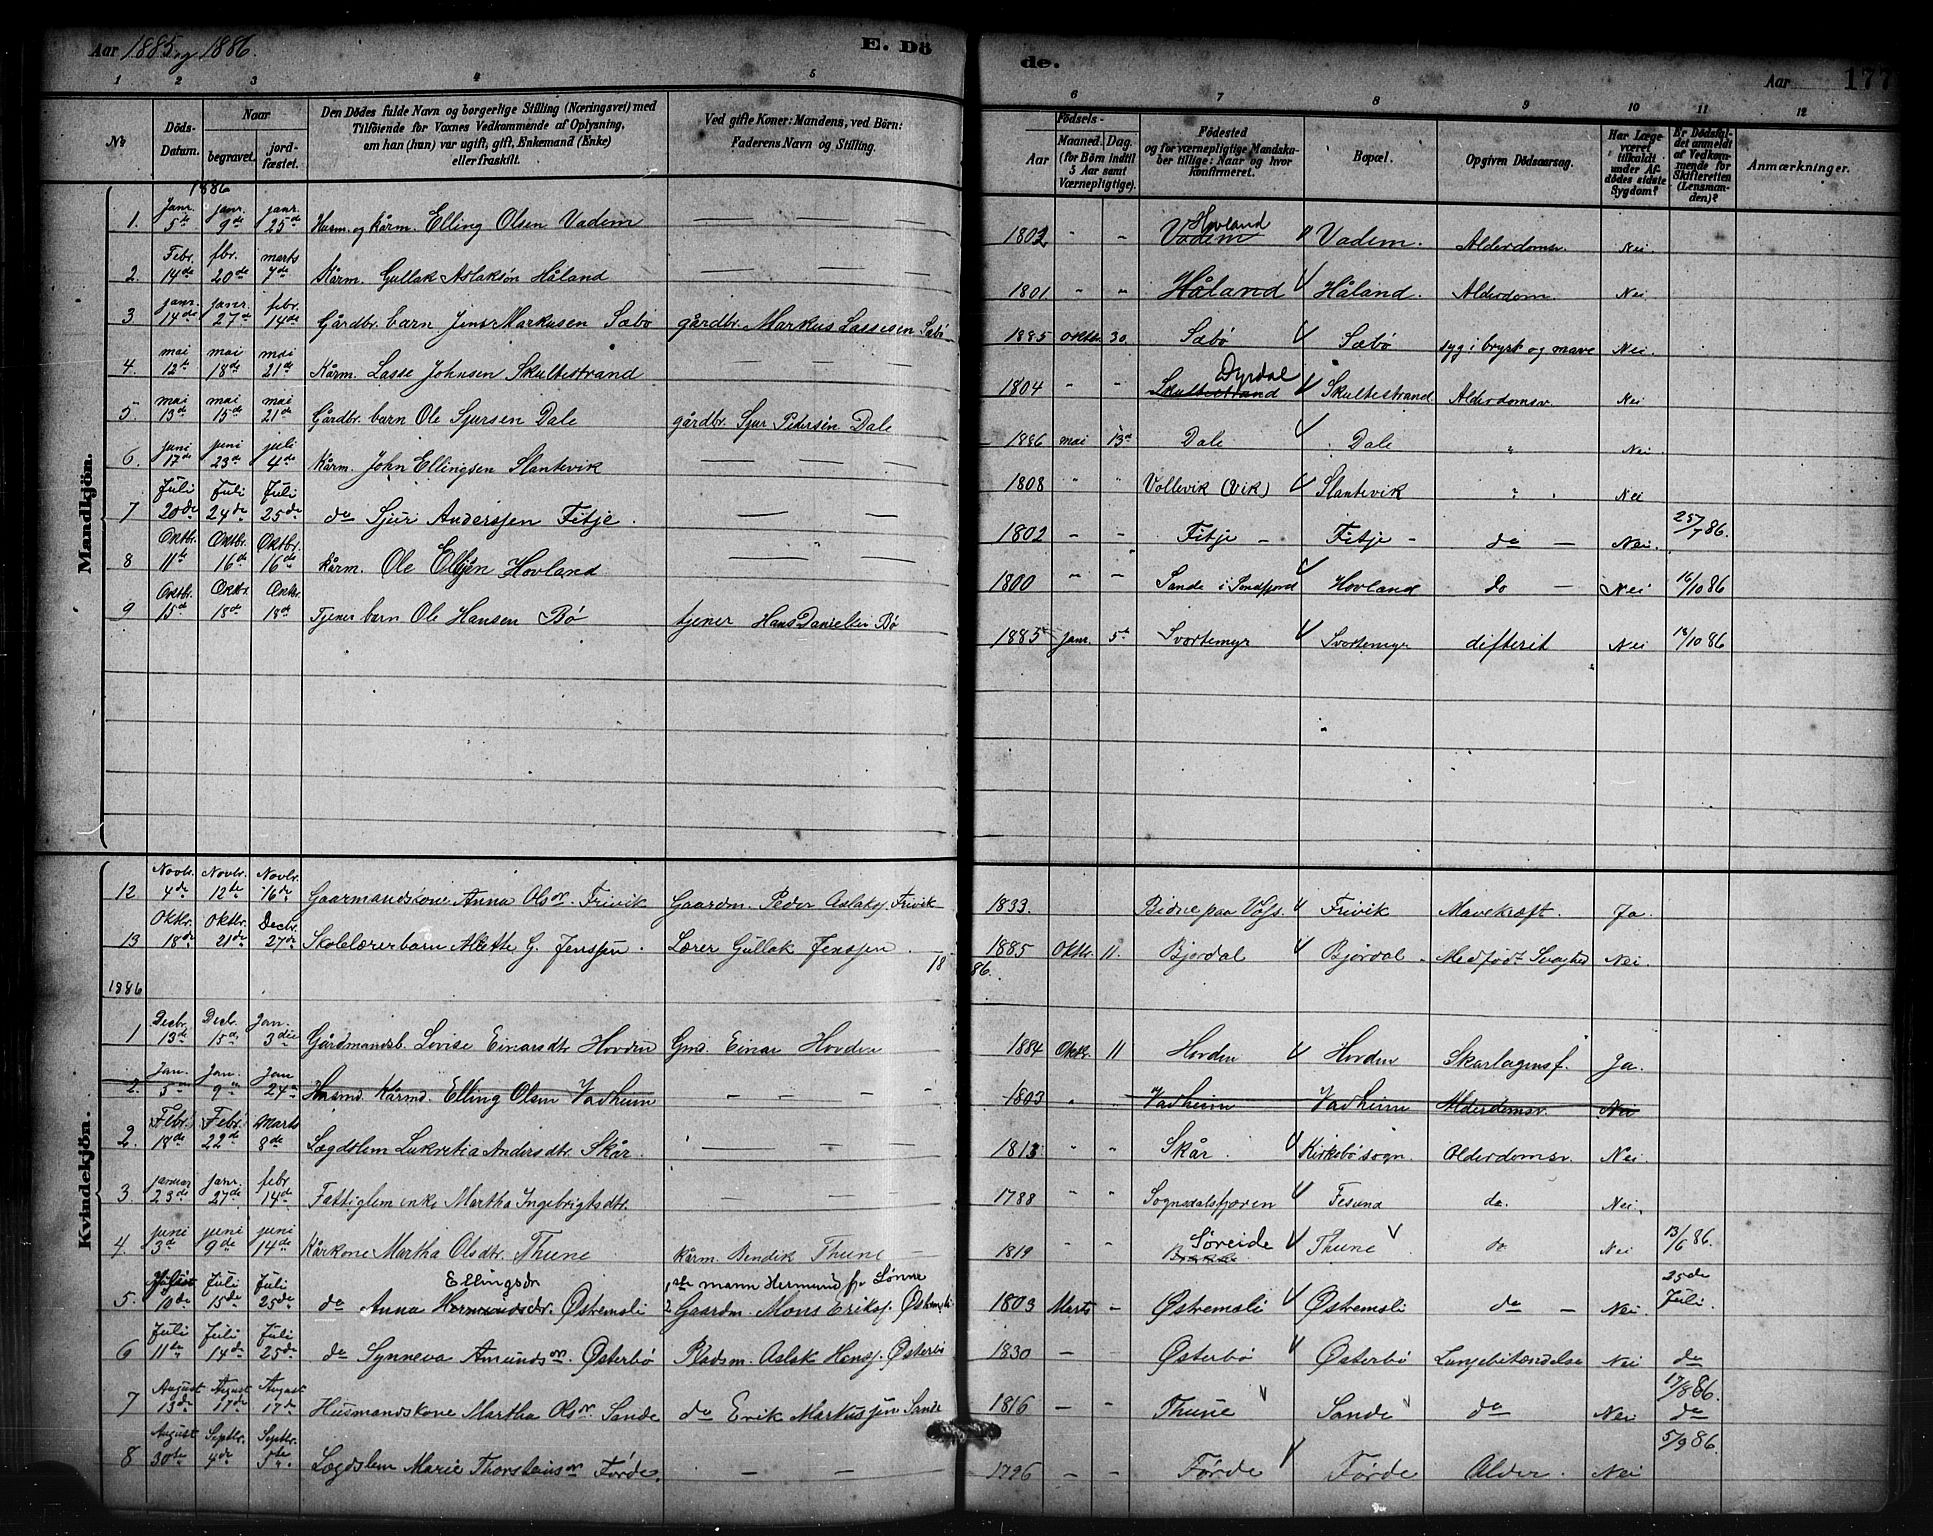 Aar 1885 og 1886. E. Dö de. Aar 177
1 2 3 4 5 6 7 8 9 10 11 12
No Döds-Datum. Naar begravet. jordfæstet. Den Dödes fulde Navn og borgerlige Stilling (Næringsvei) med Tilföiende for Voxnes Vedkommende af Oplysning, om han (hun) var ugift, gift, Enkemand (Enke) eller fraskilt. Ved gifte Koner: Mandens, ved Börn: Faderens Navn og Stilling. Födsels- Aar Maaned. Dag. (for Börn indtil 5 Aar samt Værnepligtige). Födested og for værnepligtige Mandskaber tillige: Naar og hvor konfirmeret. Bopæl. Opgiven Dödsaarsag. Har Læge været tilkaldt under Afdödes sidste Sygdom? Er Dödsfaldet anmeldt af Vedkommende for Skifteretten (Lensmanden)? Anmærkninger.
Mandkjön.
1886
1. Janr. 5te janr. 9de janr. 25de Husm. og kårm. Elling Olsen Vadem — — — 1802 " " Vadem Hovland Vadem. Alderdomsv. Nei
2. Febr. 14de fbr. 20de marts 7de Kårm. Gullak Aslaksøn Håland — — — 1801 " " Håland Håland. Alderdom Nei
3 janr. 14de janr. 27de febr. 14de Gårdbr. barn Jens Markusen Sæbø gårdbr. Markus Lassesen Sæbø 1885 oktbr. 30. Sæbø Sæbø syg i bryst og mave Nei.
4. mai 12te mai 18de mai 21de Kårm. Lasse Johnsen Skultestrand — — — 1804 " " Skultestrand Dyrdal Skultestrand Alderdomsv. Nei
5. mai 13de mai 15de mai 21de Gårdbr. barn Ole Sjursen Dale gårdbr. Sjur Pedersen Dale 1886 mai 13de Dale Dale " Nei
6. juni 17de juni 23de juli 4de Kårm. John Ellingsen Slantevik — — — 1808 " " Vollevik (Vik) Slantevik " Nei
7 Juli 20de Juli 24de Juli 25de do Sjur Anderssen Fitje. — — 1802 - - Fitje - Fitje - do — Nei. 25/7 86.
8 Oktbr. 11te Oktbr. 16de Oktbr. 16de Kårm. Ole Hovland — — — 1800 " - Sande i Søndfjord Hovland do — Nei 16/10 86
9 Oktbr. 15de Oktbr. 18de Oktbr. 18de Tjener barn Ole Hansen Bø tjener Hans Danielsen Bø 1885 janr. 5te Svortemyr Svortemyr difterit Nei 18/10 86
Kvindekjön.
12 Novbr. 4de Novbr. 12te Novbr. 16de Gaarmandskone Anna Olsdr. Frivik Gaardm. Peder Aslaks. Frivik 1833. Frivik Mavekræft. Ja.
13 Oktbr. 18de Oktbr. 21de Decbr. 27de Skolelærerbarn G. Jenssen. Lærer Gullak Jenssen. 1885 Oktbr. 11. Bjordal Bjørdal. Medfødt Svaghed Nei.
1886 1886.
1 Decbr. 13de Decbr. 15de Jan. 3die Gårdmandsb. Lovise Einarsdtr. Hovden Gmd. Einar Hovden 1884 Oktbr. 11 Hovden Hovden Skarlagensf. Ja.
2. Jan. 5te Jan. 9de Jan 24de Husmd. Kårmd. Elling Olsen Vadheim — — — 1803 " Vadheim Vadheim Alderdomsv. Nei
2. Febr. 18de Febr. 22de Marts 8de Lægdslem Lukretia Andersdtr. Skår. — — 1813 " " Skår. Kirkebø sogn. Alderdomsv. Nei.
3 januar 23de janr. 27de febr 14de Fattiglem enke Martha Ingebrigtsdtr. — — — 1788 " " Sognedalsfjæren do. Nei.
4. juni 3de juni 9de juni 14de Kårkone Martha Olsdtr. Thune kårm. Bendik Thune — 1819 " Søreide Thune do Nei 13/6 86.
5. 10de Juli 15de Juli 25de do Anna Hermundsdr. Ellingsdr Østremsli 1ste mann Hermund 2 Gaardm. Mons Eriks. Østremsli 1803 Marts - Østremsli Østremsli do — Nei 25de Juli.
6 Juli 11te Juli 14de Juli 25de do Synneva Amundsdr. Østerbø Pladsm. Aslak Hans. Østerbø 1830 — Østerbø Østerbø Lungebetændelse Nei do
7 August 13de August 17de August 17de Husmandskone Martha Olsdr. Sande do Erik Markussen Sande 1816 — — Thune Sande do Nei 17/8 86. do
8 August 30te Septbr. 4de Septbr. 5te. Lægdslem Marie Thorsteinsdr Førde. — — 1796 — — Førde Førde Alder. Nei 5/9 86.